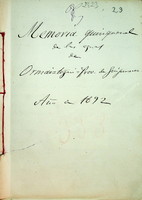 23
Memoria quinquenal
de las aguas
de
Ormáiztegui Prov. de Guipúzcoa
Año de 1892